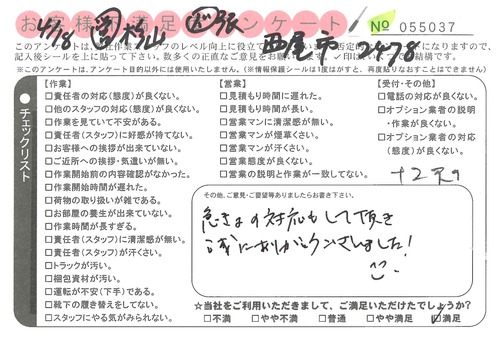 お客様満足度アンケート
4/18
西尾市
2478
№ 055037
このアンケートは、
記入後シールを上に貼って下さい。数多くの正直なご意見をお願い
結構です。
※このアンケートは、アンケート目的以外には使用いたしません。(※情報保護シールは1度はがすと、再度貼りなおすことはできません)
チェックリスト
【作業】
□責任者の対応(態度)が良くない。
□他のスタッフの対応(態度)が良くない。
□作業を見ていて不安がある。
□責任者(スタッフ)に好感が持てない。
□お客様への挨拶が出来ていない。
□ご近所への挨拶・気遣いが無い。
□作業開始前の内容確認がなかった。
□作業開始時間が遅れた。
□荷物の取り扱いが雑である。
□お部屋の養生が出来ていない。
□作業時間が長すぎる。
□責任者(スタッフ)に清潔感が無い。
□責任者(スタッフ)が汗くさい。
□トラックが汚い。
□梱包資材が汚い。
□運転が不安(下手)である。
□靴下の履き替えをしてない。
□スタッフにやる気がみられない。
【営業】
□見積もり時間に遅れた。
□見積もり時間が長い。
□営業マンに清潔感が無い。
□営業マンが煙草くさい。
□営業マンが汗くさい。
□営業態度が良くない。
□営業の説明と作業が一致してない。
【受付・その他】
□電話の対応が良くない。
□オプション業者の説明
・作業が良くない。
□オプション業者の対応
(態度)が良くない。
その他、ご意見・ご要望等ありましたらお書き下さい。
急きょの対応もして頂き
誠にありがとうございました!
☆当社をご利用いただきまして、ご満足いただけたでしょうか?
□不満 □やや不満 □普通 □やや満足 ☑満足